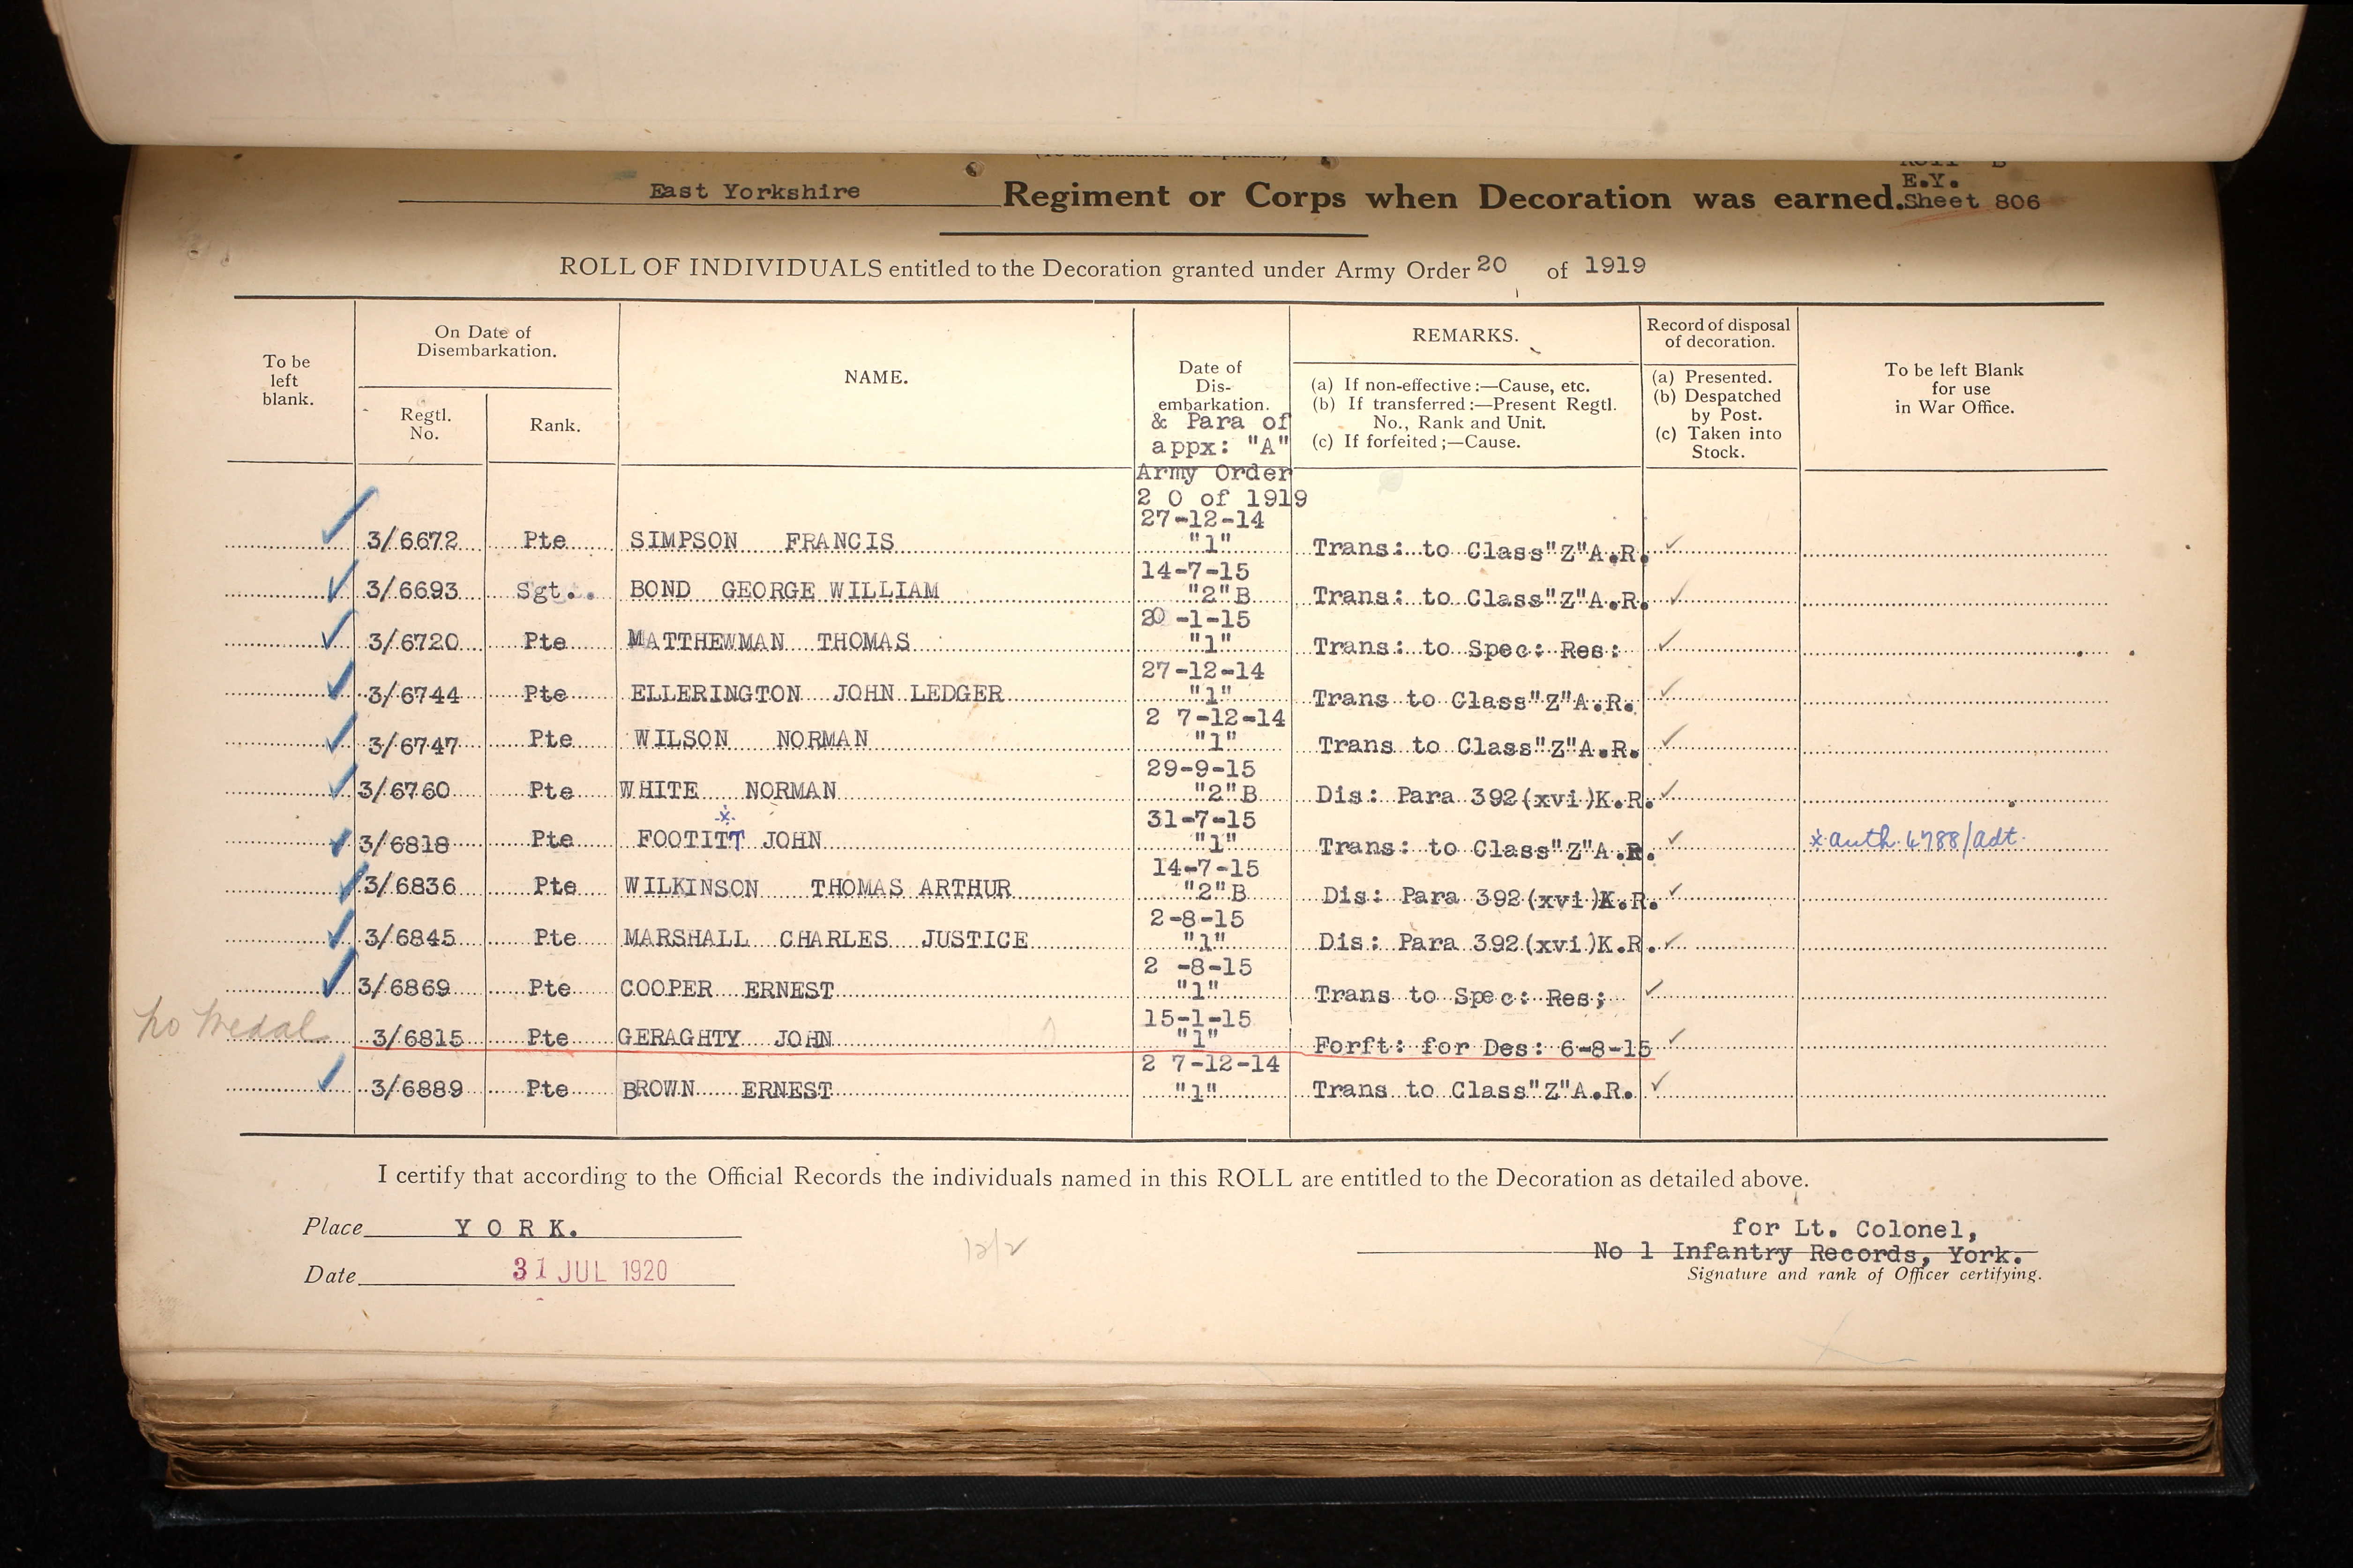 E.Y.
East Yorkshire Regiment or Corps when Decoration was earned. Sheet 806
ROLL OF INDIVIDUALS entitled to the Decoration granted under Army Order 20 of 1919
To be left blank.
On Date of Disembarkation.
Regtl. No.
Rank.
NAME.
Date of Dis-
embarkation.
& Para of
appx: "A"
Army Order
2 0 of 1919
REMARKS.
(a) If non-effective:—Cause, etc.
(b) If transferred:—Present Regtl.
No., Rank and Unit.
(c) If forfeited;—Cause.
Record of disposal
of decoration.
(a) Presented.
(b) Despatched
by Post.
(c) Taken into
Stock.
To be left Blank
for use
in War Office.
27-12-14
3/6672 Pte SIMPSON FRANCIS "1" Trans: to Class"Z"A.R.
14-7-15
3/6693 Sgt.. BOND GEORGE WILLIAM "2"B Trans: to Class"Z"A.R.
20 -1-15
3/6720 Pte MATTHEWMAN THOMAS "1" Trans: to Spec: Res:
27-12-14
3/6744 Pte ELLERINGTON JOHN LEDGER "1" Trans to Class"Z"A.R.
2 7-12-14
3/6747 Pte WILSON NORMAN "1" Trans to Class"Z"A.R.
29-9-15
3/6760 Pte WHITE NORMAN "2"B Dis: Para 392(xvi)K.R.
x
31-7-15
3/6818 Pte FOOTITT JOHN "1" Trans: to Class"Z"A.R. x auth 4788/adt.
14-7-15
3/6836 Pte WILKINSON THOMAS ARTHUR "2"B Dis: Para 392(xvi)K.R.
2-8-15
3/6845 Pte MARSHALL CHARLES JUSTICE "1" Dis: Para 392(xvi)K.R.
2 -8-15
3/6869 Pte COOPER ERNEST "1" Trans to Spec: Res;
15-1-15
No Medal 3/6815 Pte GERAGHTY JOHN "1" Forft: for Des: 6-8-15
2 7-12-14
3/6889 Pte BROWN ERNEST "1" Trans to Class"Z"A.R.
I certify that according to the Official Records the individuals named in this ROLL are entitled to the Decoration as detailed above.
Place Y O R K.
for Lt. Colonel,
No 1 Infantry Records, York.
Date 31 JUL 1920
Signature and rank of Officer certifying.